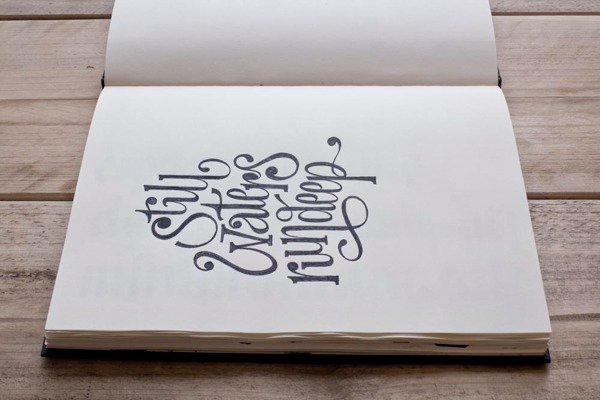 Still
Waters
run deep